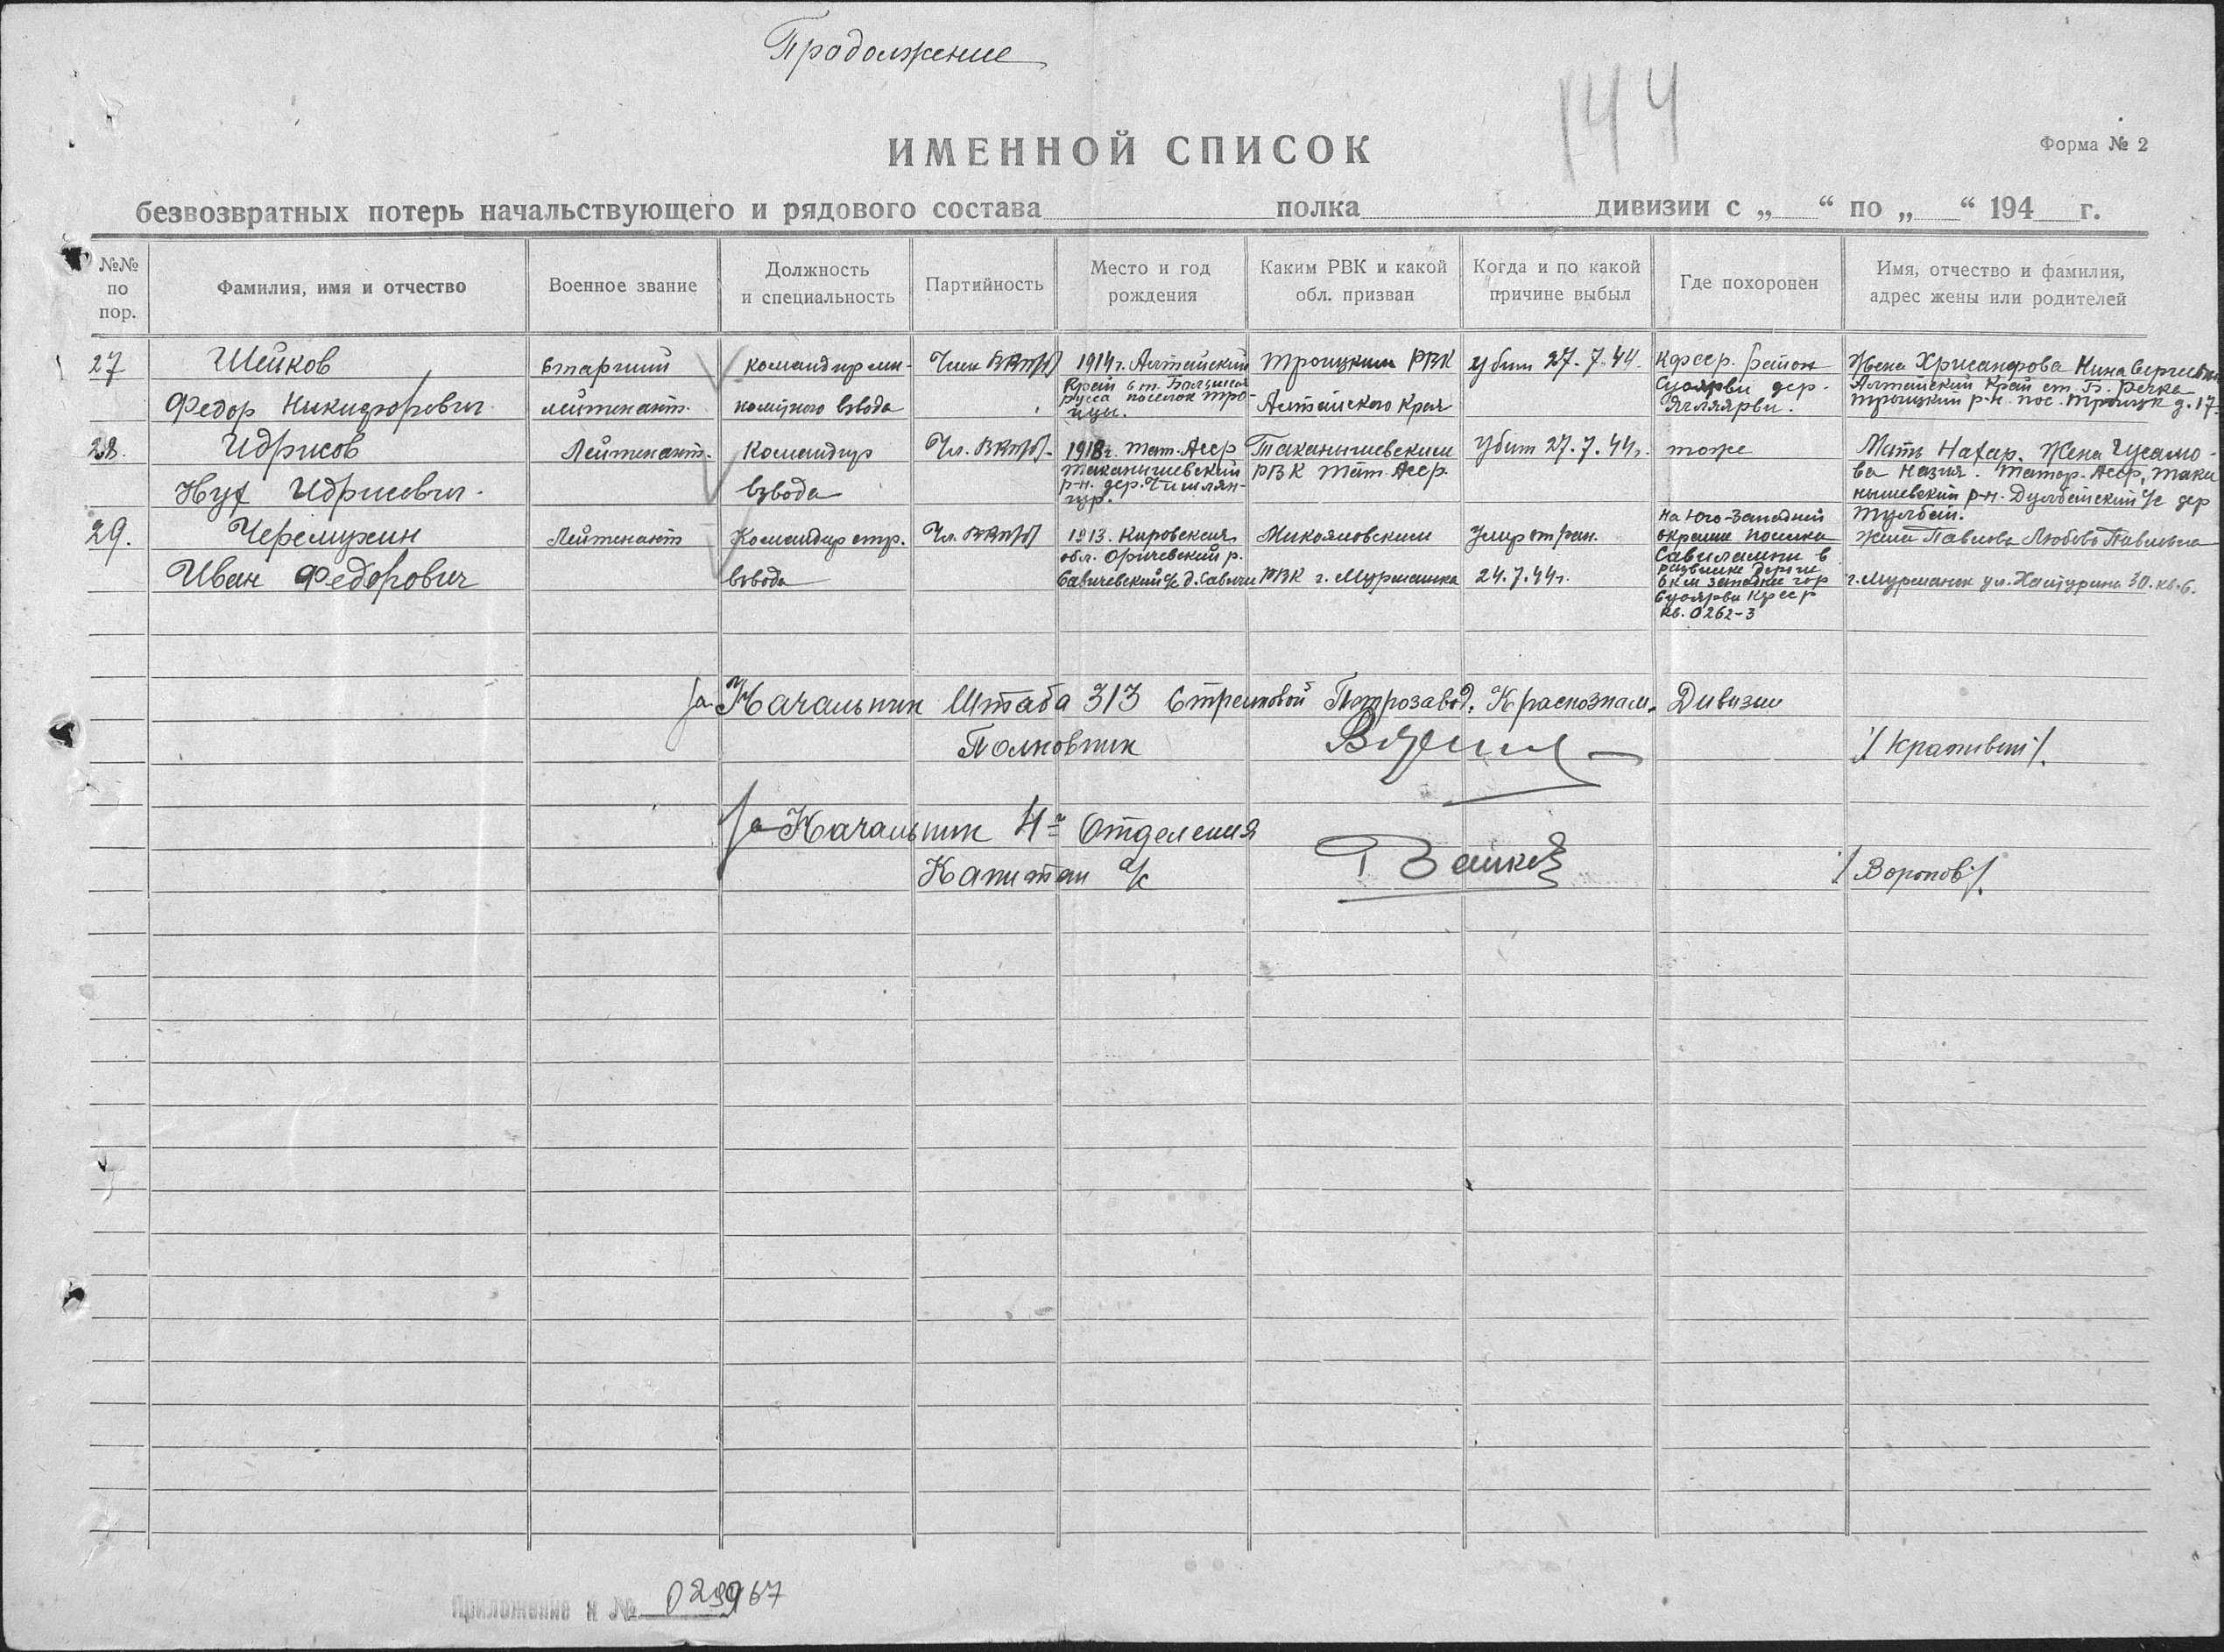 Продолжение
144
ИМЕННОЙ СПИСОК
Форма № 2
безвозвратных потерь начальствующего и рядового состава полка дивизии с „ “ по „ “ 194 г.
№№ по пор.
Фамилия, имя и отчество
Военное звание
Должность и специальность
Партийность
Место и год рождения
Каким РВК и какой обл. призван
Когда и по какой причине выбыл
Где похоронен
Имя, отчество и фамилия, адрес жены или родителей
27
Шейков
Федор Никифорович
старший
лейтенант
командир ми-
номётного взвода
Член ВКП/б/
1914 г. Алтайский
Край ст. Большая
поселок Тро-
ицк.
Троицким РВК
Алтайского Края
убит 27.7.44.
Кфсср. район
Суоярви дер.
Ягляярви.
Жена Хрисанфова Нина Сергеевна
Алтайский Край ст. Б. Речка
Троицкий р-н. пос. Троицк д. 17
28.
Идрисов
Нуf Идрисович.
Лейтенант.
Командир
взвода
Чл. ВКП/б/.
1918 г. Тат. Асср
Таканышевский
р-н. дер.
Таканышевским
РВК Тат. Асср.
Убит 27.7.44 г.
тоже
Мать Жена Гусамо-
ва Назия. Татар. Асср, Така
нышевский р-н. Дулбейский с/с дер
Тулбей.
29.
Черемухин
Иван Федорович
Лейтенант
Командир стр.
взвода
Чл. ВКП/б/
1913. Кировская
обл. Оричевский р.
Савичевский с/с д. Савичи
Микояновским
РВК г. Мурманска
Умер от ран.
24.7.44 г.
На Юго-Западней
окраине поселка
в
развилке дороги
6 км западнее гор
Суоярви Кфсср
кв. 0262-3
Жена Павлова Любовь Павловна
г. Мурманск ул. 30. кв. 6.
за Начальник Штаба 313 Стрелковой Петрозавод. Краснознам. Дивизии
Полковник
/Крапивин/.
за Начальник 4го Отделения
Капитан а/с
/Воронов/.
Приложение к №